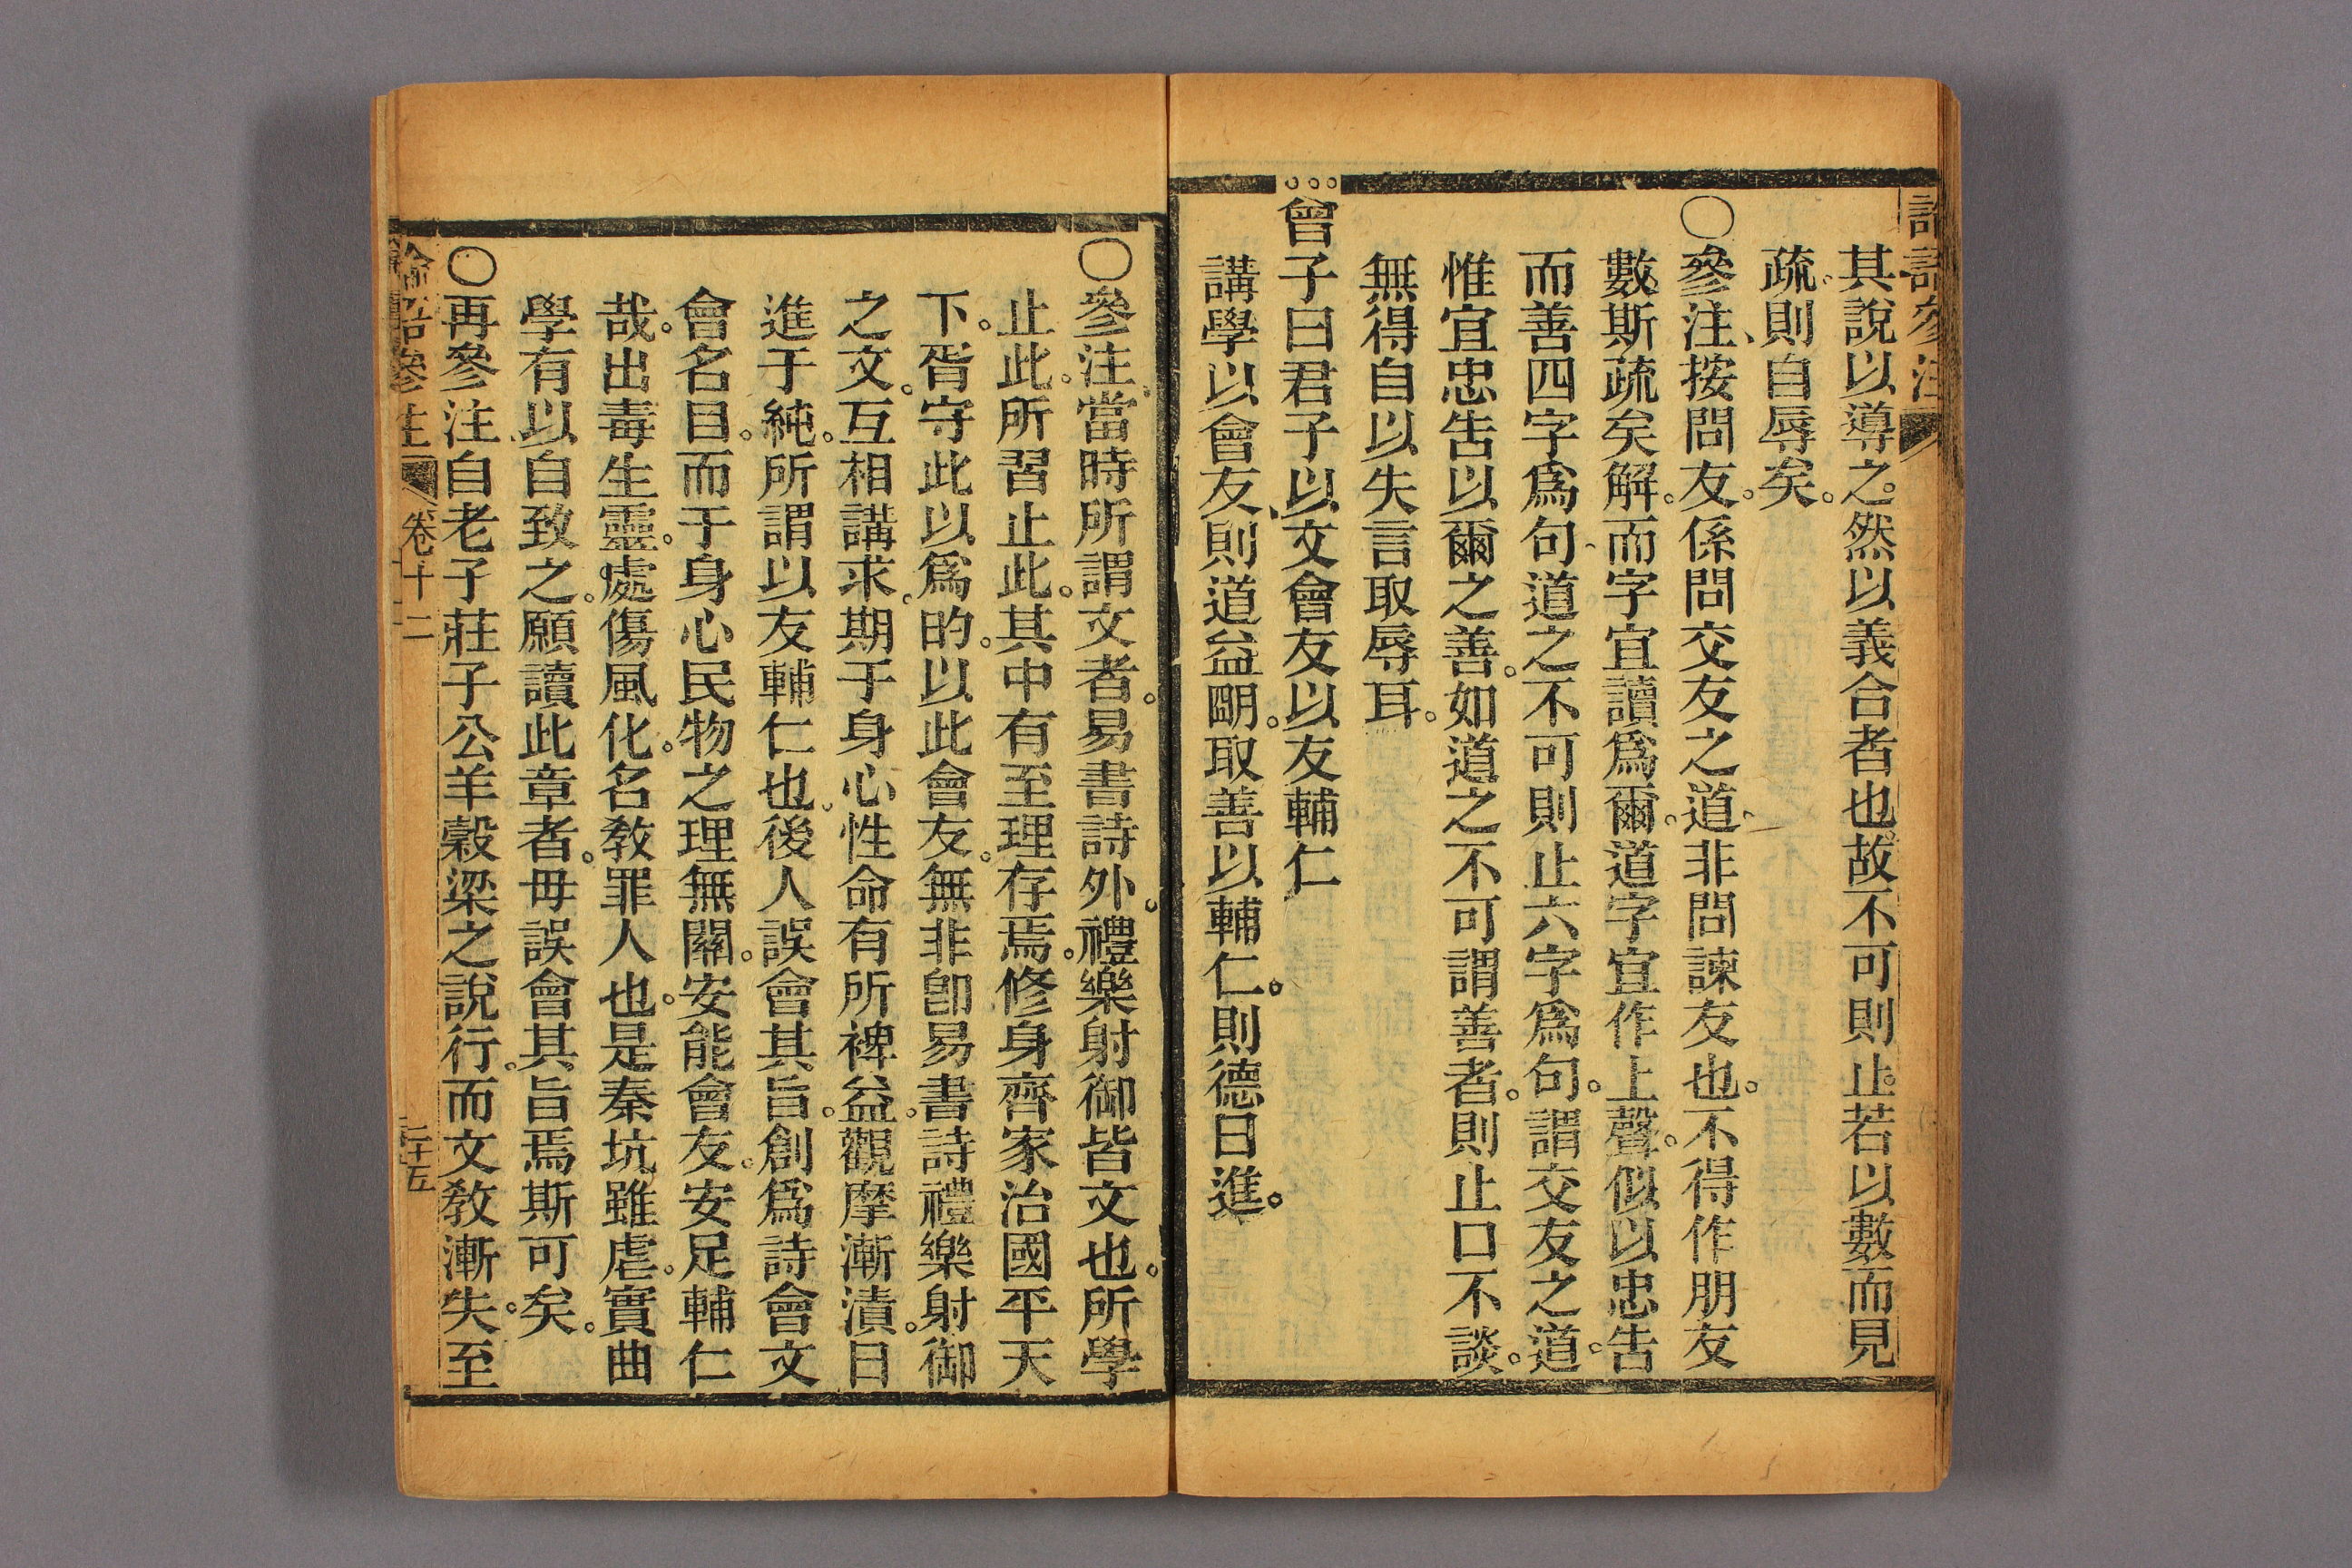 其說以導之然以義合者也故不可則止若以數而見
疏則自辱矣
〇參注按問友係問交友之道非問諫友也不得作朋友
數斯疏矣解而字宜讀爲爾道字宜作上聲似以忠吿
而善四字爲句道之不可則止六字爲句謂交友之道
惟宜忠吿以爾之善如道之不可謂善者則止口不談
無得自以失言取辱耳
曾子曰君子以文會友以友輔仁
講學以會友則道益明取善以輔仁則德日進
〇參注當時所謂文者易書詩外禮樂射御皆文也所學
止此所習止此其中有至理存焉修身齊家治國平天
下胥守此以爲的以此會友無非卽易書詩禮樂射御
之文互相講求期于身心性命有所裨益觀摩漸漬日
進于純所謂以友輔仁也後人誤會其旨創爲詩會文
會名目而于身心民物之理無關安能會友安足輔仁
哉出毒生靈處傷風化名敎罪人也是秦坑雖虐實曲
學有以自致之願讀此章者毋誤會其旨焉斯可矣
〇再參注自老子莊子公羊穀梁之說行而文敎漸失至
論語參注 卷十二 二十五